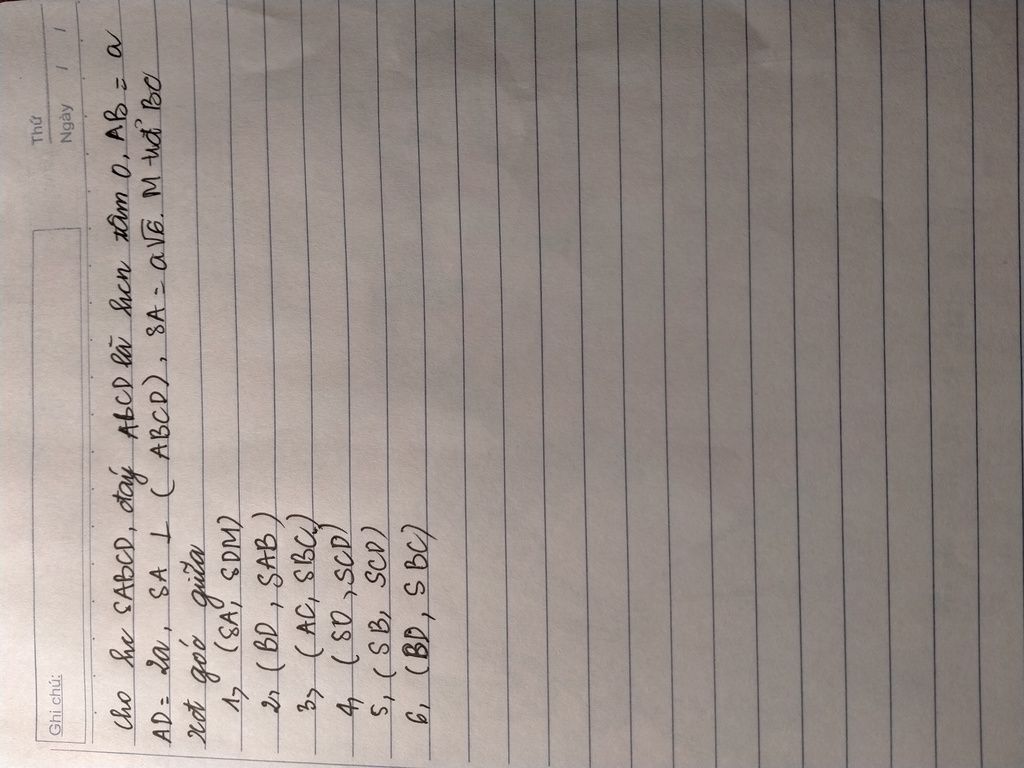 Ghi chú:
Thứ
Ngày / /
Cho hc SABCD, đáy ABCD là hcn tâm O, AB = a
AD = 2a, SA ⊥ (ABCD), SA = a√6. M tđ BC
xđ góc giữa
1, (SA, SDM)
2, (BD, SAB)
3, (AC, SBC)
4, (SO, SCD)
5, (SB, SCD)
6, (BD, SBC)